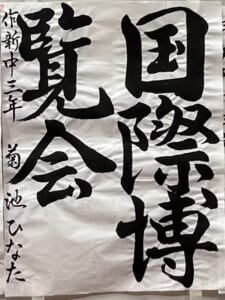 国際博
覧会
作新中三年 菊池ひなた